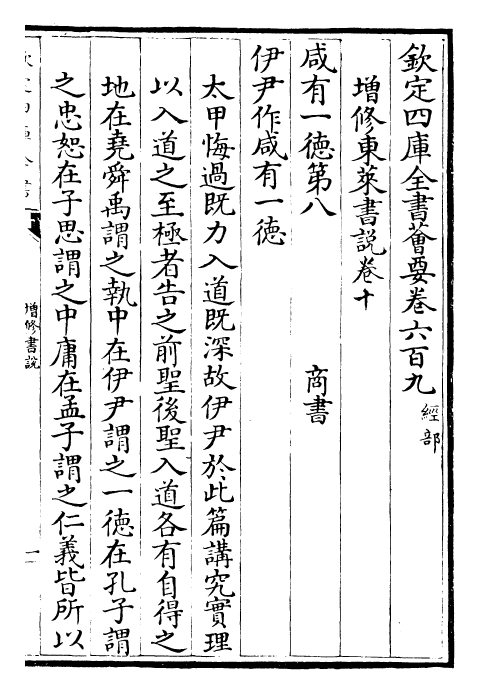 欽定四庫全書薈要卷六百九 經部
增修東萊書說卷十
咸有一徳第八 商書
伊尹作咸有一徳
太甲悔過既力入道既深故伊尹於此篇講究實理
以入道之至極者告之前聖後聖入道各有自得之
地在堯舜禹謂之執中在伊尹謂之一徳在孔子謂
之忠恕在子思謂之中庸在孟子謂之仁義皆所以
增修書說
一